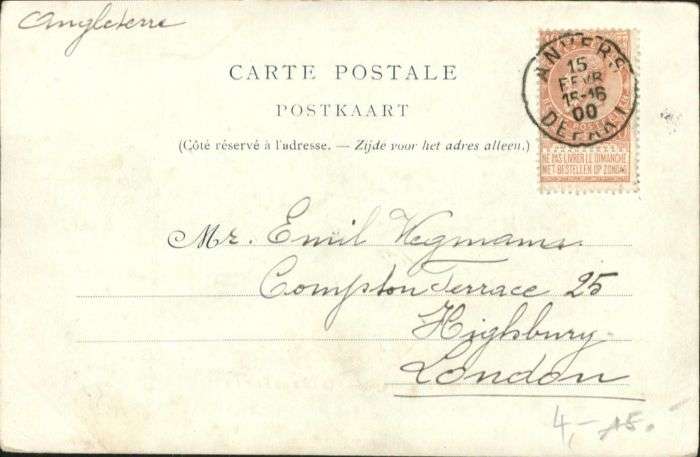 Angleterre
CARTE POSTALE
POSTKAART
(Côté réservé à l'adresse. — Zijde voor het adres alleen.)
ANVERS
15
FEVR
15-16
00
DEPART
NE PAS LIVRER LE DIMANCHE
NIET BESTELLEN OP ZONDAG
Mr. Emil Wegmams.
Compton Terrace 25
Highbury.
London
4,-